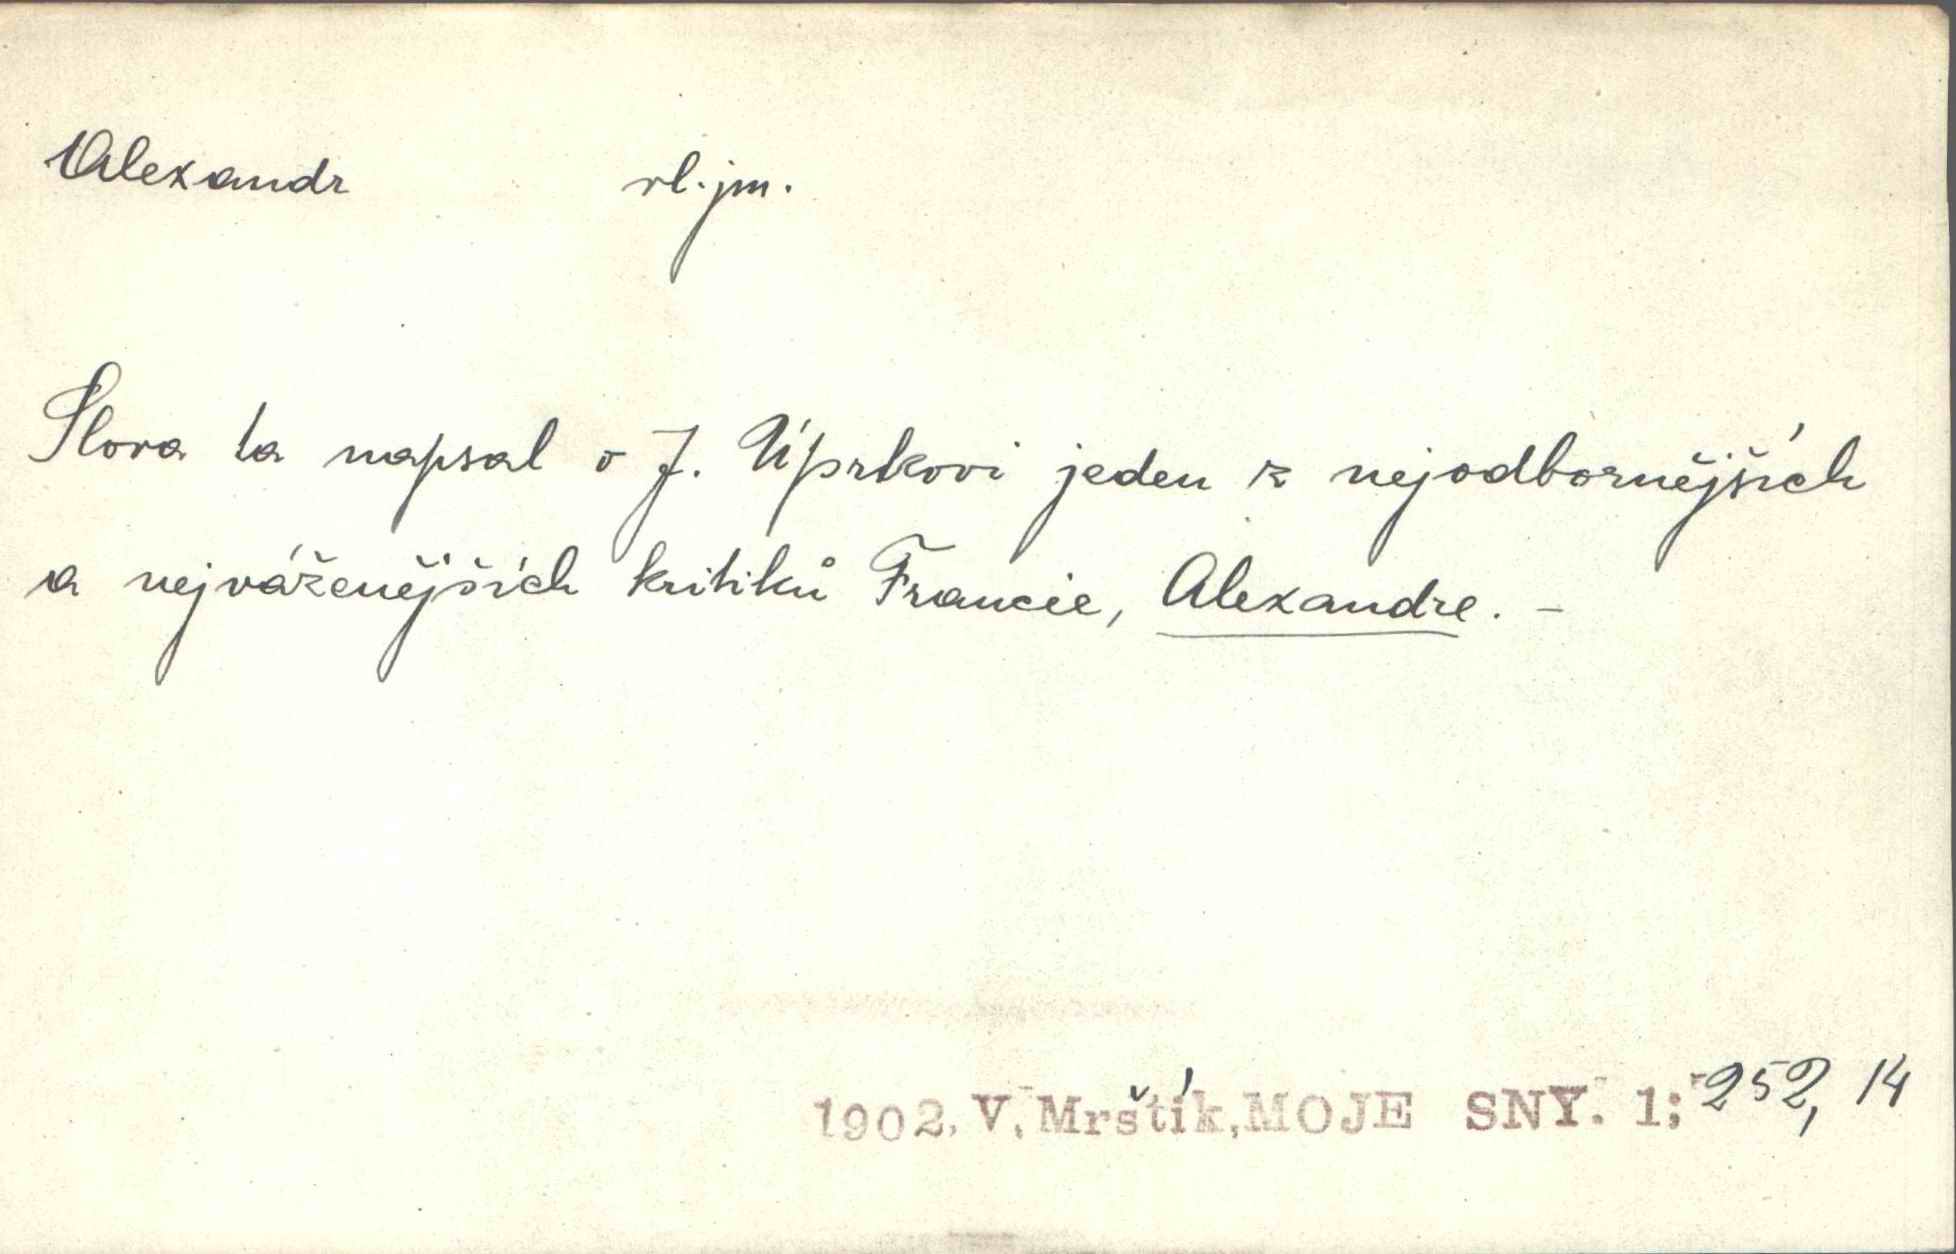 Alexandr vl. jm.
Slova ta napsal o J. Úprkovi jeden z nejodbornějších
a nejváženějších kritiků Francie, Alexandre. –
1902, V. Mrštík, MOJE SNY. 1; 252, 14